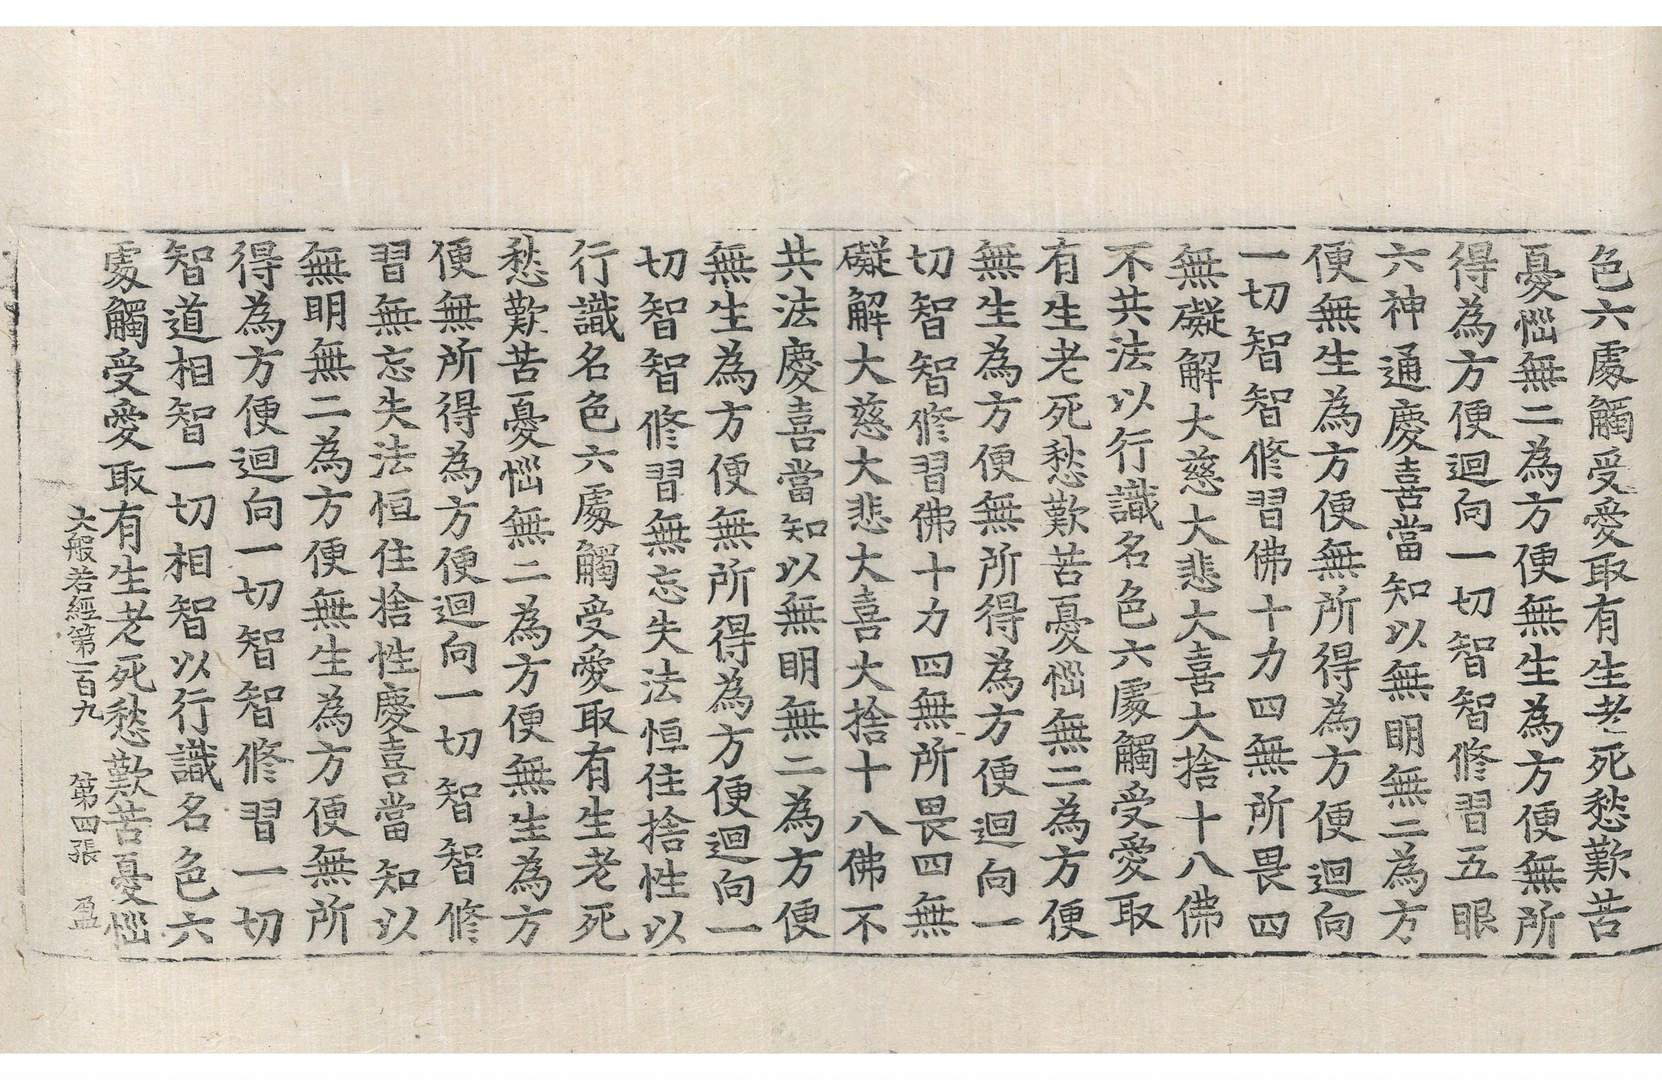 色六處觸受愛取有生老死愁歎苦
憂惱無二為方便無生為方便無所
得為方便迴向一切智智修習五眼
六神通慶喜當知以無明無二為方
便無生為方便無所得為方便迴向
一切智智修習佛十力四無所畏四
無礙解大慈大悲大喜大捨十八佛
不共法以行識名色六處觸受愛取
有生老死愁歎苦憂惱無二為方便
無生為方便無所得為方便迴向一
切智智修習佛十力四無所畏四無
礙解大慈大悲大喜大捨十八佛不
共法慶喜當知以無明無二為方便
無生為方便無所得為方便迴向一
切智智修習無忘失法恒住捨性以
行識名色六處觸受愛取有生老死
愁歎苦憂惱無二為方便無生為方
便無所得為方便迴向一切智智修
習無忘失法恒住捨性慶喜當知以
無明無二為方便無生為方便無所
得為方便迴向一切智智修習一切
智道相智一切相智以行識名色六
處觸受愛取有生老死愁歎苦憂惱
大般若經第一百九 第四張 盈